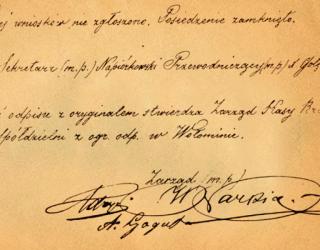 wniosków nie zgłoszono. Posiedzenie zamknięto.
Sekretarz (m.p.) Napiórkowski Przewodniczący (m.p.)
odpisu z oryginałem stwierdza Zarząd Kasy
Spółdzielni z ogr. odp. w Wołominie.
Zarząd (m.p.)